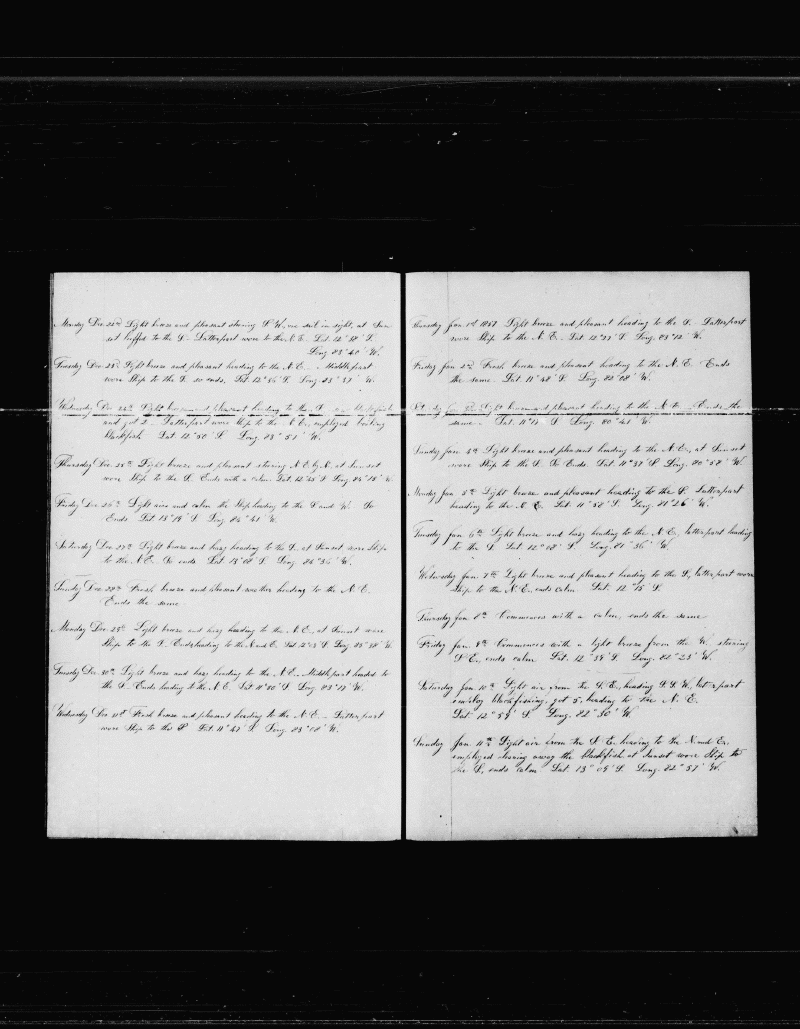 Monday Dec 22nd Light breeze and pleasant steering S W, one sail in sight, at Sun-
set luffed to the S. Latterpart wore to the N.E. Lat. 12° 18' S.
Long 83° 40' W.
Tuesday Dec. 23d Light breeze and pleasant heading to the N.E. Middlepart
wore Ship to the S. so ends. Lat. 12° 56' S Long. 83° 37' W.
Wednesday Dec 24th Light breeze and pleasant heading to the S.
and got 2. Latterpart wore Ship to the N.E., employed boiling
blackfish Lat 12° 50' S. Long. 83° 51' W.
Thursday Dec. 25th Light breeze and pleasant steering N.E by N. at Sunset
wore Ship to the S. Ends with a calm Lat. 12° 45' S Long. 84° 18' W.
Friday Dec 26th Light airs and calm the Ship heading to the S and W. So
Ends Lat 13° 14' S Long 84° 41' W.
Saturday Dec. 27th Light breeze and hazy heading to the S. at Sunset wore Ship
to the N.E. So ends. Lat. 13° 08' S. Long. 84° 56' W.
Sunday Dec. 28th Fresh breeze and pleasant weather heading to the N. E.
Ends the same
Monday Dec 29th Light breeze and hazy heading to the N.E., at Sunset wore
Ship to the S. Ends heading to the N and E. Lat. 12° 03' S. Long. 83° 38' W.
Tuesday Dec. 30th Light breeze and hazy heading to the N.E. Middlepart headed to
the S. Ends heading to the N.E. Lat. 11° 20' S. Long. 83° 17' W.
Wednesday Dec 31st Fresh breeze and pleasant heading to the N.E. Latterpart
wore Ship to the S Lat. 11° 41' S. Long. 83° 08' W.
Thursday Jan 1st 1857 Light breeze and pleasant heading to the S. Latterpart
wore Ship to the N.E. Lat. 12° 27' S. Long. 83° 12' W.
Friday Jan 2nd Fresh breeze and pleasant heading to the N.E. Ends
the same. Lat. 11° 48' S. Long. 82° 08' W.
Light breeze and pleasant heading to the N. E. Ends the
same. Lat. 11° 17' S. Long. 80° 41' W.
Sunday Jan 4th Light breeze and pleasant heading to the N.E., at Sunset
wore Ship to the S. So Ends. Lat. 11° 37' S Long. 80° 57' W.
Monday Jan 5th Light breeze and pleasant heading to the S. Latterpart
heading to the N.E. Lat. 11° 50' S. Long. 81° 26' W.
Tuesday Jan 6th Light breeze and hazy heading to the N.E., latterpart heading
to the S. Lat. 12° 08' S. Long. 81° 36' W.
Wednesday Jan. 7th Light breeze and pleasant heading to the S., latterpart wore
Ship to the N.E., ends calm Lat. 12° 15' S.
Thursday Jan 8th Commences with a calm, ends the same
Friday Jan. 9th Commences with a light breeze from the W. steering
S E, ends calm Lat. 12° 39' S. Long. 82° 23' W.
Saturday Jan 10th Light air from the S.E., heading S.S.W., latterpart
employ blackfishing, got 5, heading to the N. E.
Lat 12° 59' S. Long. 82° 30' W.
Sunday Jan 11th Light air from the S. E. heading to the N and E.,
employed stowing away the blackfish, at Sunset wore Ship to
the S., ends calm Lat. 13° 09' S. Long. 82° 57' W.